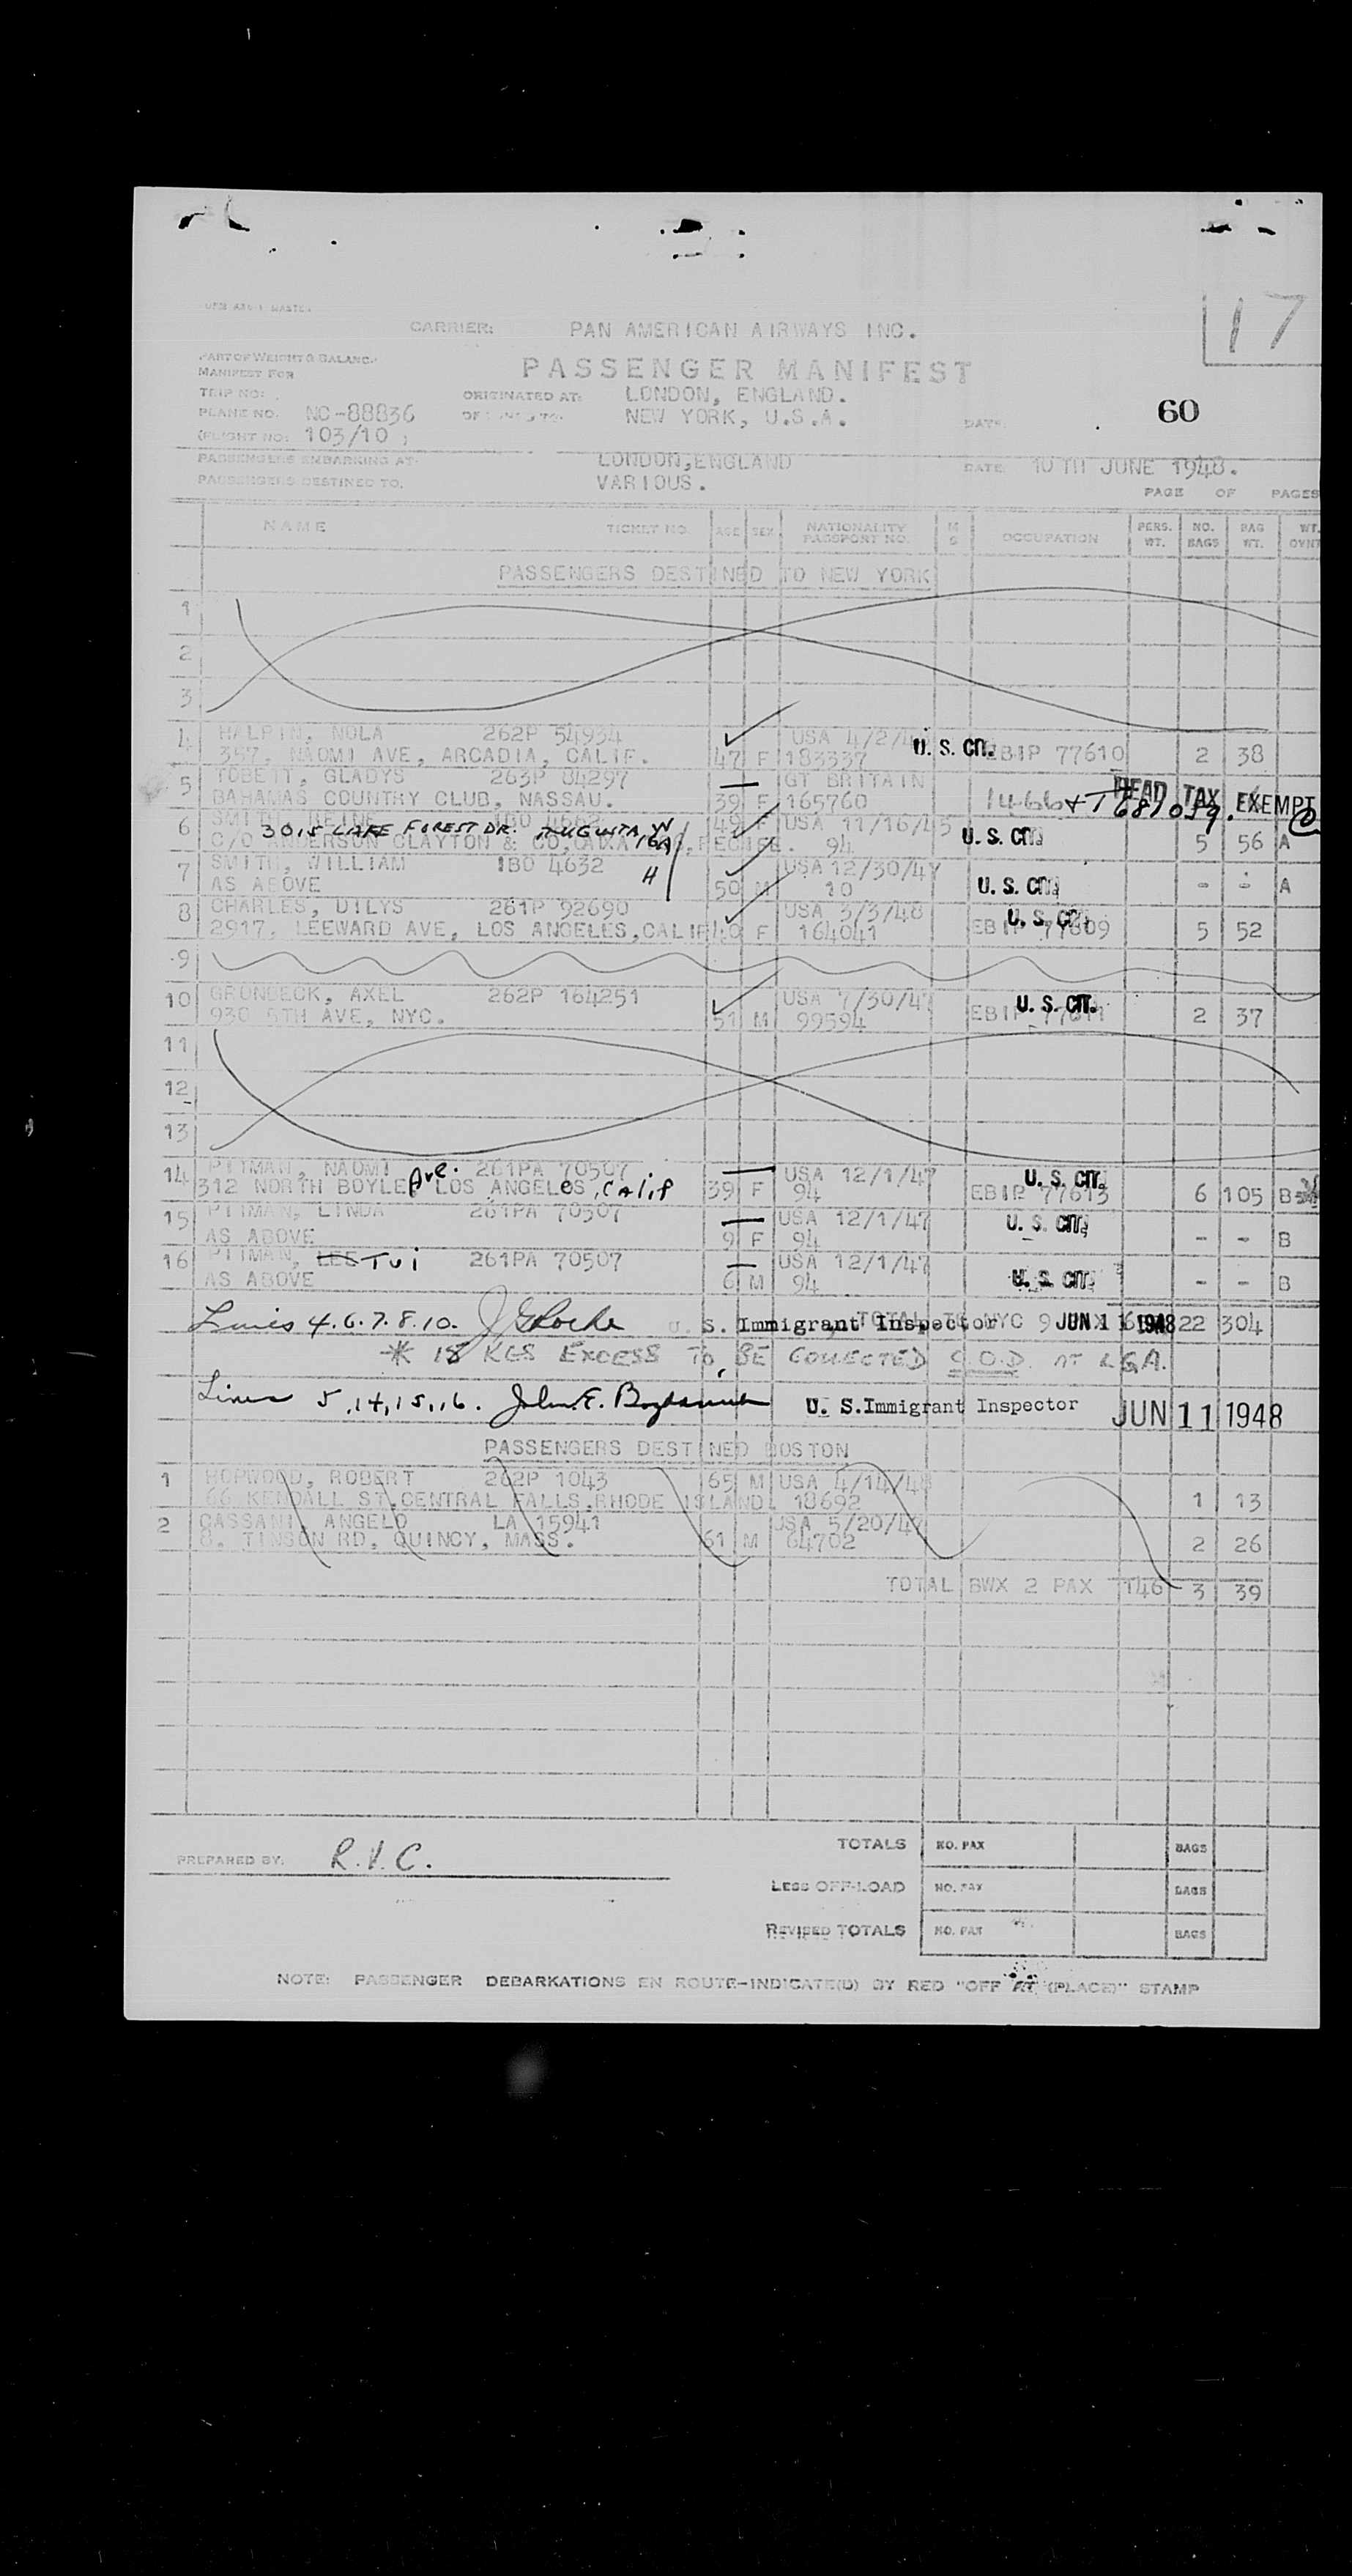 17
CARRIER: PAN AMERICAN AIRWAYS INC.
PART OF WEIGHT & BALANCE
MANIFEST FOR
PASSENGER MANIFEST
TRIP NO:
ORIGINATED AT: LONDON, ENGLAND.
PLANE NO. NC-88836
NEW YORK, U.S.A.
DATE: 60
(FLIGHT NO: 103/10 )
PASSENGERS EMBARKING AT: LONDON, ENGLAND DATE: 10TH JUNE 1948.
PASSENGERS DESTINED TO: VARIOUS.
PAGE OF PAGES
NAME TICKET NO. AGE SEX NATIONALITY PASSPORT NO. M S OCCUPATION PERS. WT. NO. BAGS BAG WT. WT.
PASSENGERS DESTINED TO NEW YORK
1
2
3
4 HALPIN, NOLA 262P 54934 USA 4/2/4 U. S. CIT.
357, NAOMI AVE, ARCADIA, CALIF. 47 F 183337 EBIP 77610 2 38
5 TOBETT, GLADYS 263P 84297 GT BRITAIN
BAHAMAS COUNTRY CLUB, NASSAU. 39 F 165760 HEAD TAX EXEMPT
6 SMITH, 49 F USA 11/16/45 U. S. CIT.
3015 LAKE FOREST DR. AUGUSTA, GA W
C/O ANDERSON CLAYTON & CO, CAIXA 94 5 56 A
7 SMITH, WILLIAM IBO 4632 USA 12/30/47 U. S. CIT.
AS ABOVE H 50 M 10 - - A
8 CHARLES, DILYS 261P 92690 USA 3/3/48 U. S. CIT.
2917, LEEWARD AVE, LOS ANGELES, CALIF 40 F 164041 EBIP 77609 5 52
9
10 GRONBECK, AXEL 262P 164251 USA 7/30/47 U. S. CIT.
930 5TH AVE, NYC. 51 M 99594 EBIP 77611 2 37
11
12
13
14 PITMAN, NAOMI 261PA 70507 USA 12/1/47 U. S. CIT.
312 NORTH BOYLE Ave. LOS ANGELES, CALIF 39 F 94 EBIP 77613 6 105 B
15 PITMAN, LINDA 261PA 70507 USA 12/1/47 U. S. CIT.
AS ABOVE 9 F 94 - - B
16 PITMAN, LEE TUI 261PA 70507 USA 12/1/47 U. S. CIT.
AS ABOVE 6 M 94 - - B
Lines 4.6.7.8.10. U. S. Immigrant Inspector TOTAL TO NYC 9 JUN 11 1948 22 304
* 18 KGS EXCESS TO BE COLLECTED C.O.D. AT LGA.
Lines 5,14,15,16. John E. U. S. Immigrant Inspector JUN 11 1948
PASSENGERS DESTINED BOSTON
1 HOPWOOD, ROBERT 262P 1043 65 M USA 4/14/48
66 KENDALL ST, CENTRAL FALLS, RHODE ISLAND. 18692 1 13
2 CASSANI, ANGELO LA 15941 USA 5/20/47
8. TINSON RD, QUINCY, MASS. 61 M 64702 2 26
TOTAL BWX 2 PAX 146 3 39
TOTALS NO. PAX BAGS
PREPARED BY: R.V.C.
LESS OFF-LOAD NO. PAX BAGS
REVISED TOTALS NO. PAX BAGS
NOTE: PASSENGER DEBARKATIONS EN ROUTE-INDICATE(D) BY RED "OFF AT (PLACE)" STAMP